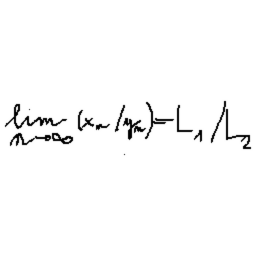 lim (xₙ/yₙ)=L₁/L₂
n→∞